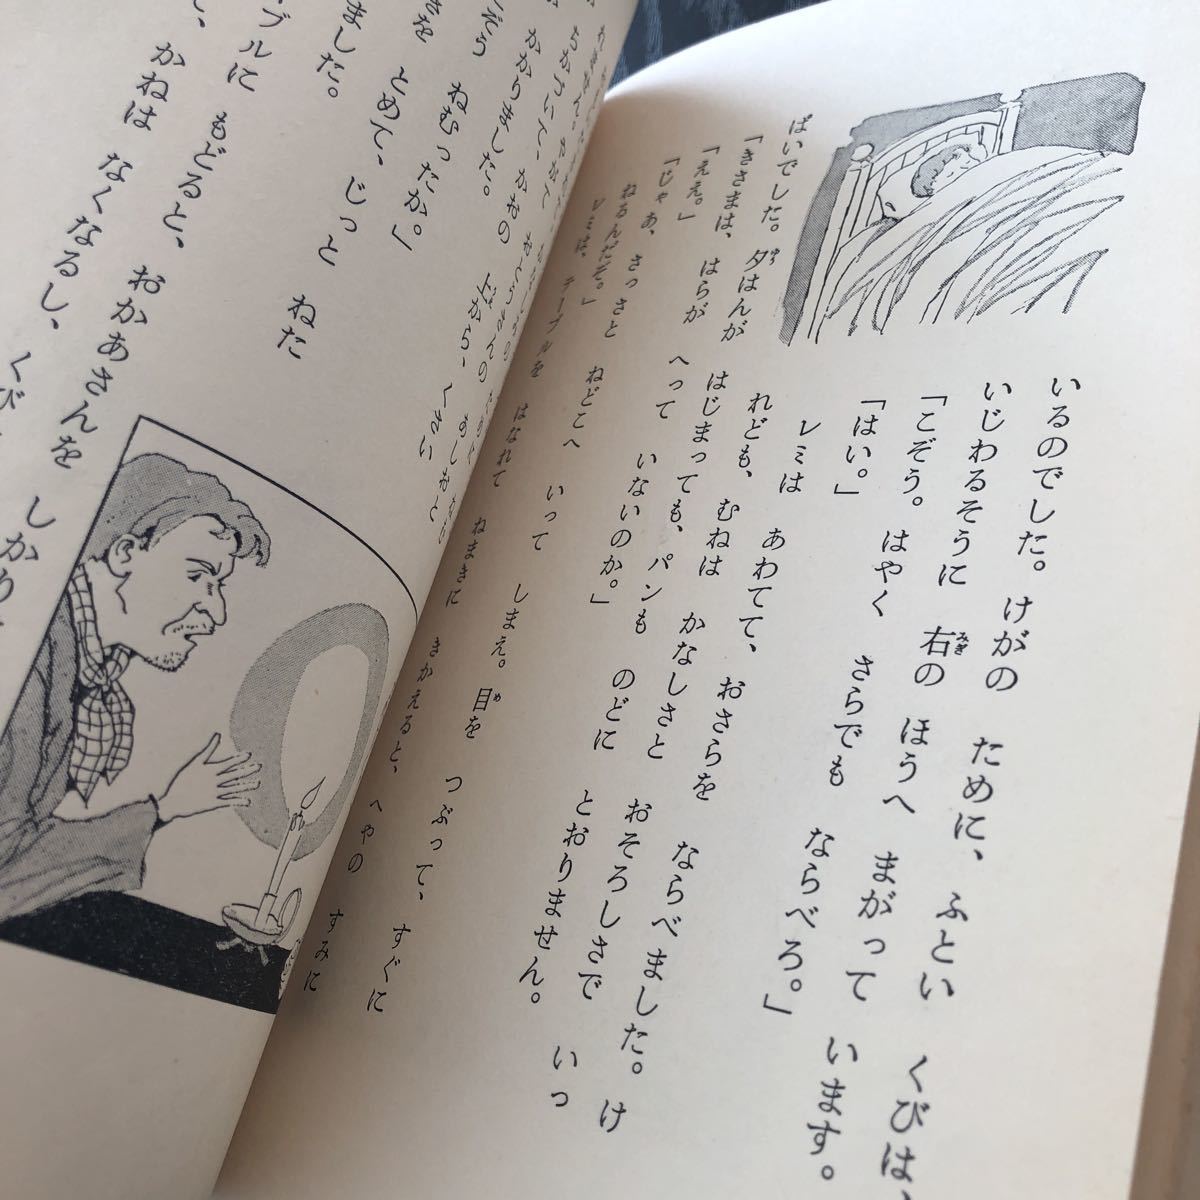 いるのでした。けがの　ために、ふとい　くびは、
いじわるそうに　右の　ほうへ　まがって　います。
みぎ
「こぞう。はやく　さらでも　ならべろ。」
「はい。」
レミは　あわてて、おさらを　ならべました。け
れども、むねは　かなしさと　おそろしさで　いっ
ぱいでした。夕はんが　はじまっても、パンも　のどに　とおりません。
ゆう
「きさまは、はらが　へって　いないのか。」
「ええ。」
「じゃあ、さっさと　ねどこへ　いって　しまえ。目を　つぶって、すぐに
め
ねるんだぞ。」
レミは、テーブルを　はなれて　ねまきに　きかえると、へやの　すみに
ちかづいて、　かおの　上から、くさい
かかりました。
ぞう　ねむったか。」
を　とめて、じっと　ねた
ました。
ブルに　もどると、おかあさんを　しかり
、かねは　なくなるし、くび